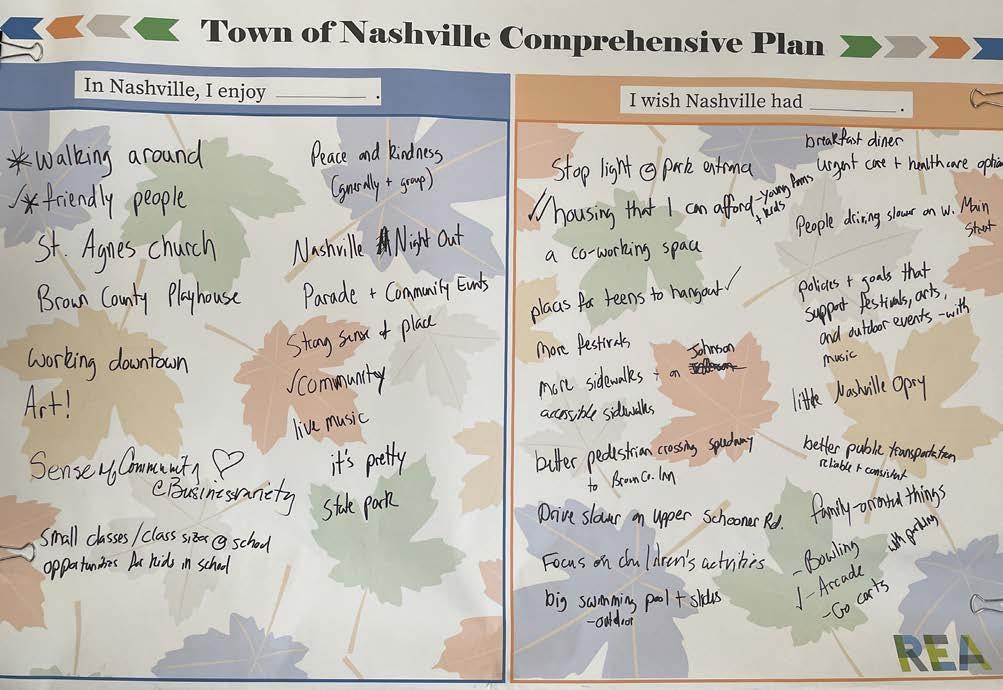 Town of Nashville Comprehensive Plan
In Nashville, I enjoy _________ .
* walking around
✓* friendly people
St. Agnes church
Brown County Playhouse
working downtown
Art!
Sense of Community ♡
@Business variety
Small classes/class sizes @ school
opportunities for kids in school
Peace and kindness
(generally + group)
Nashville Night Out
Parade + Community Events
Strong sense of place
✓community
live music
it's pretty
State park
I wish Nashville had _________ .
Stop light @ park entrance
✓✓housing that I can afford -young fams
+ kids
a co-working space
places for teens to hangout ✓
more festivals
more sidewalks + on Johnson
accessible sidewalks
better pedestrian crossing speedway
to Brown Co. Inn
Drive slower on Upper Schooner Rd.
Focus on children's activities
big swimming pool + slides
-outdoor
breakfast diner
urgent care + healthcare option
People driving slower on W. Main
Street
policies + goals that
support festivals, arts,
and outdoor events - with
music
little Nashville Opry
better public transportation
reliable + consistent
family-oriented things
with parking
- Bowling
✓- Arcade
- Go carts
REA